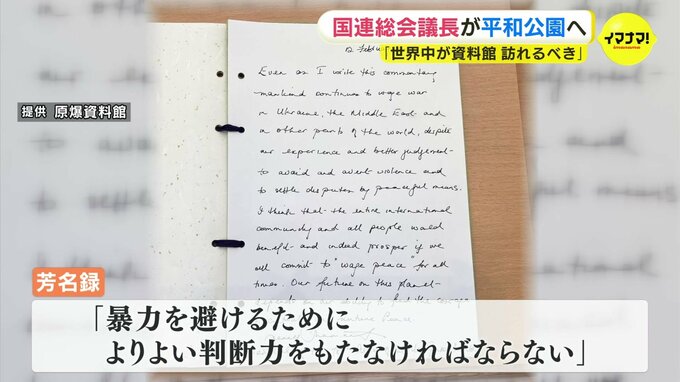 国連総会議長が平和公園へ
「世界中が資料館 訪れるべき」
イマナマ!
提供 原爆資料館
Even as I write this commentary,
mankind continues to wage war
in Ukraine, the Middle East and
in other parts of the world, despite
our experience and better judgement
to avoid and avert violence and
to settle disputes by peaceful means.
I think that the entire international
community and all people would
benefit and indeed prosper if we
all commit to "wage peace" for all
times. Our future on this planet
depends on our ability to find the courage
芳名録
「暴力を避けるために
よりよい判断力をもたなければならない」